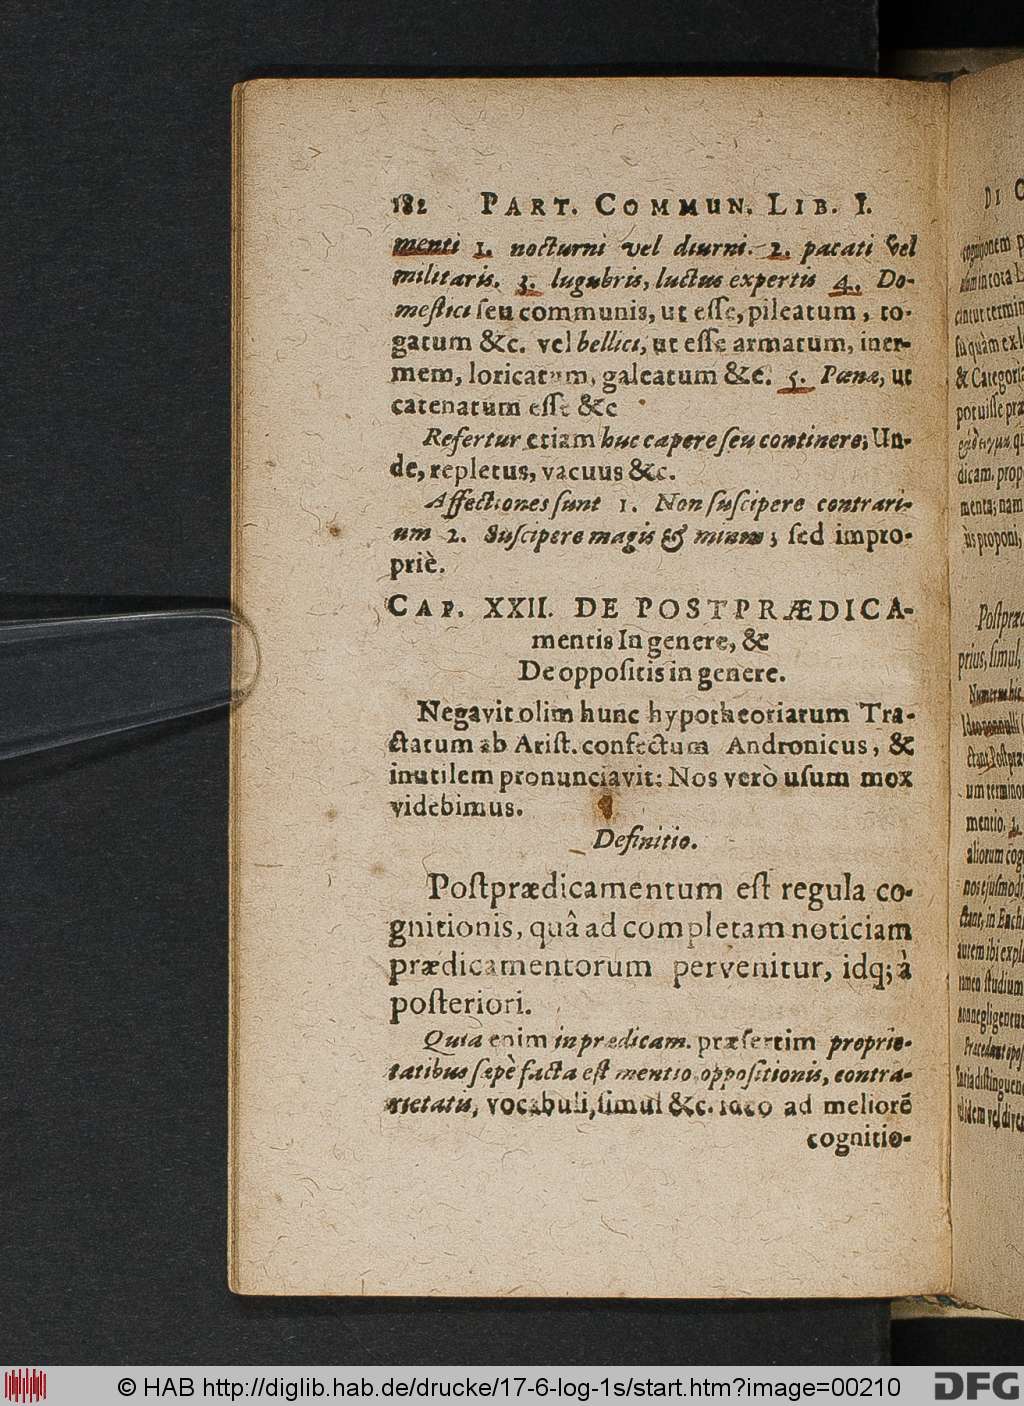 182 PART. COMMUN. LIB. I.
menti 1. nocturni vel diurni. 2. pacati vel
militaris. 3. lugubris, luctus expertis 4. Do-
mestici ſeu communis, ut eſſe, pileatum, to-
gatum &c. vel bellici, ut eſſe armatum, iner-
mem, loricatum, galeatum &c. 5. Pœnæ, ut
catenatum eſſe &c
Refertur etiam huc capere ſeu continere; Un-
de, repletus, vacuus &c.
Affectiones ſunt 1. Non ſuſcipere contrari-
um 2. Suſcipere magis & minus; ſed impro-
priè.
CAP. XXII. DE POSTPRÆDICA-
mentis In genere, &
De oppoſitis in genere.
Negavit olim hunc hypotheoriarum Tra-
ctatum ab Ariſt. confectum Andronicus, &
inutilem pronunciavit: Nos verò uſum mox
videbimus.
Definitio.
Poſtprædicamentum eſt regula co-
gnitionis, quâ ad completam noticiam
prædicamentorum pervenitur, idq; à
poſteriori.
Quia enim in prædicam. præſertim proprie-
tatibus ſæpè facta eſt mentio oppoſitionis, contra-
rietatis, vocabuli, ſimul &c. ideo ad meliorē
cognitio-
DI
cognitionem
potuiſſe
dicam. prop
menta; nam
prius, ſimul,
um termino
mentio. 2.
aliorum cog
© HAB http://diglib.hab.de/drucke/17-6-log-1s/start.htm?image=00210
DFG